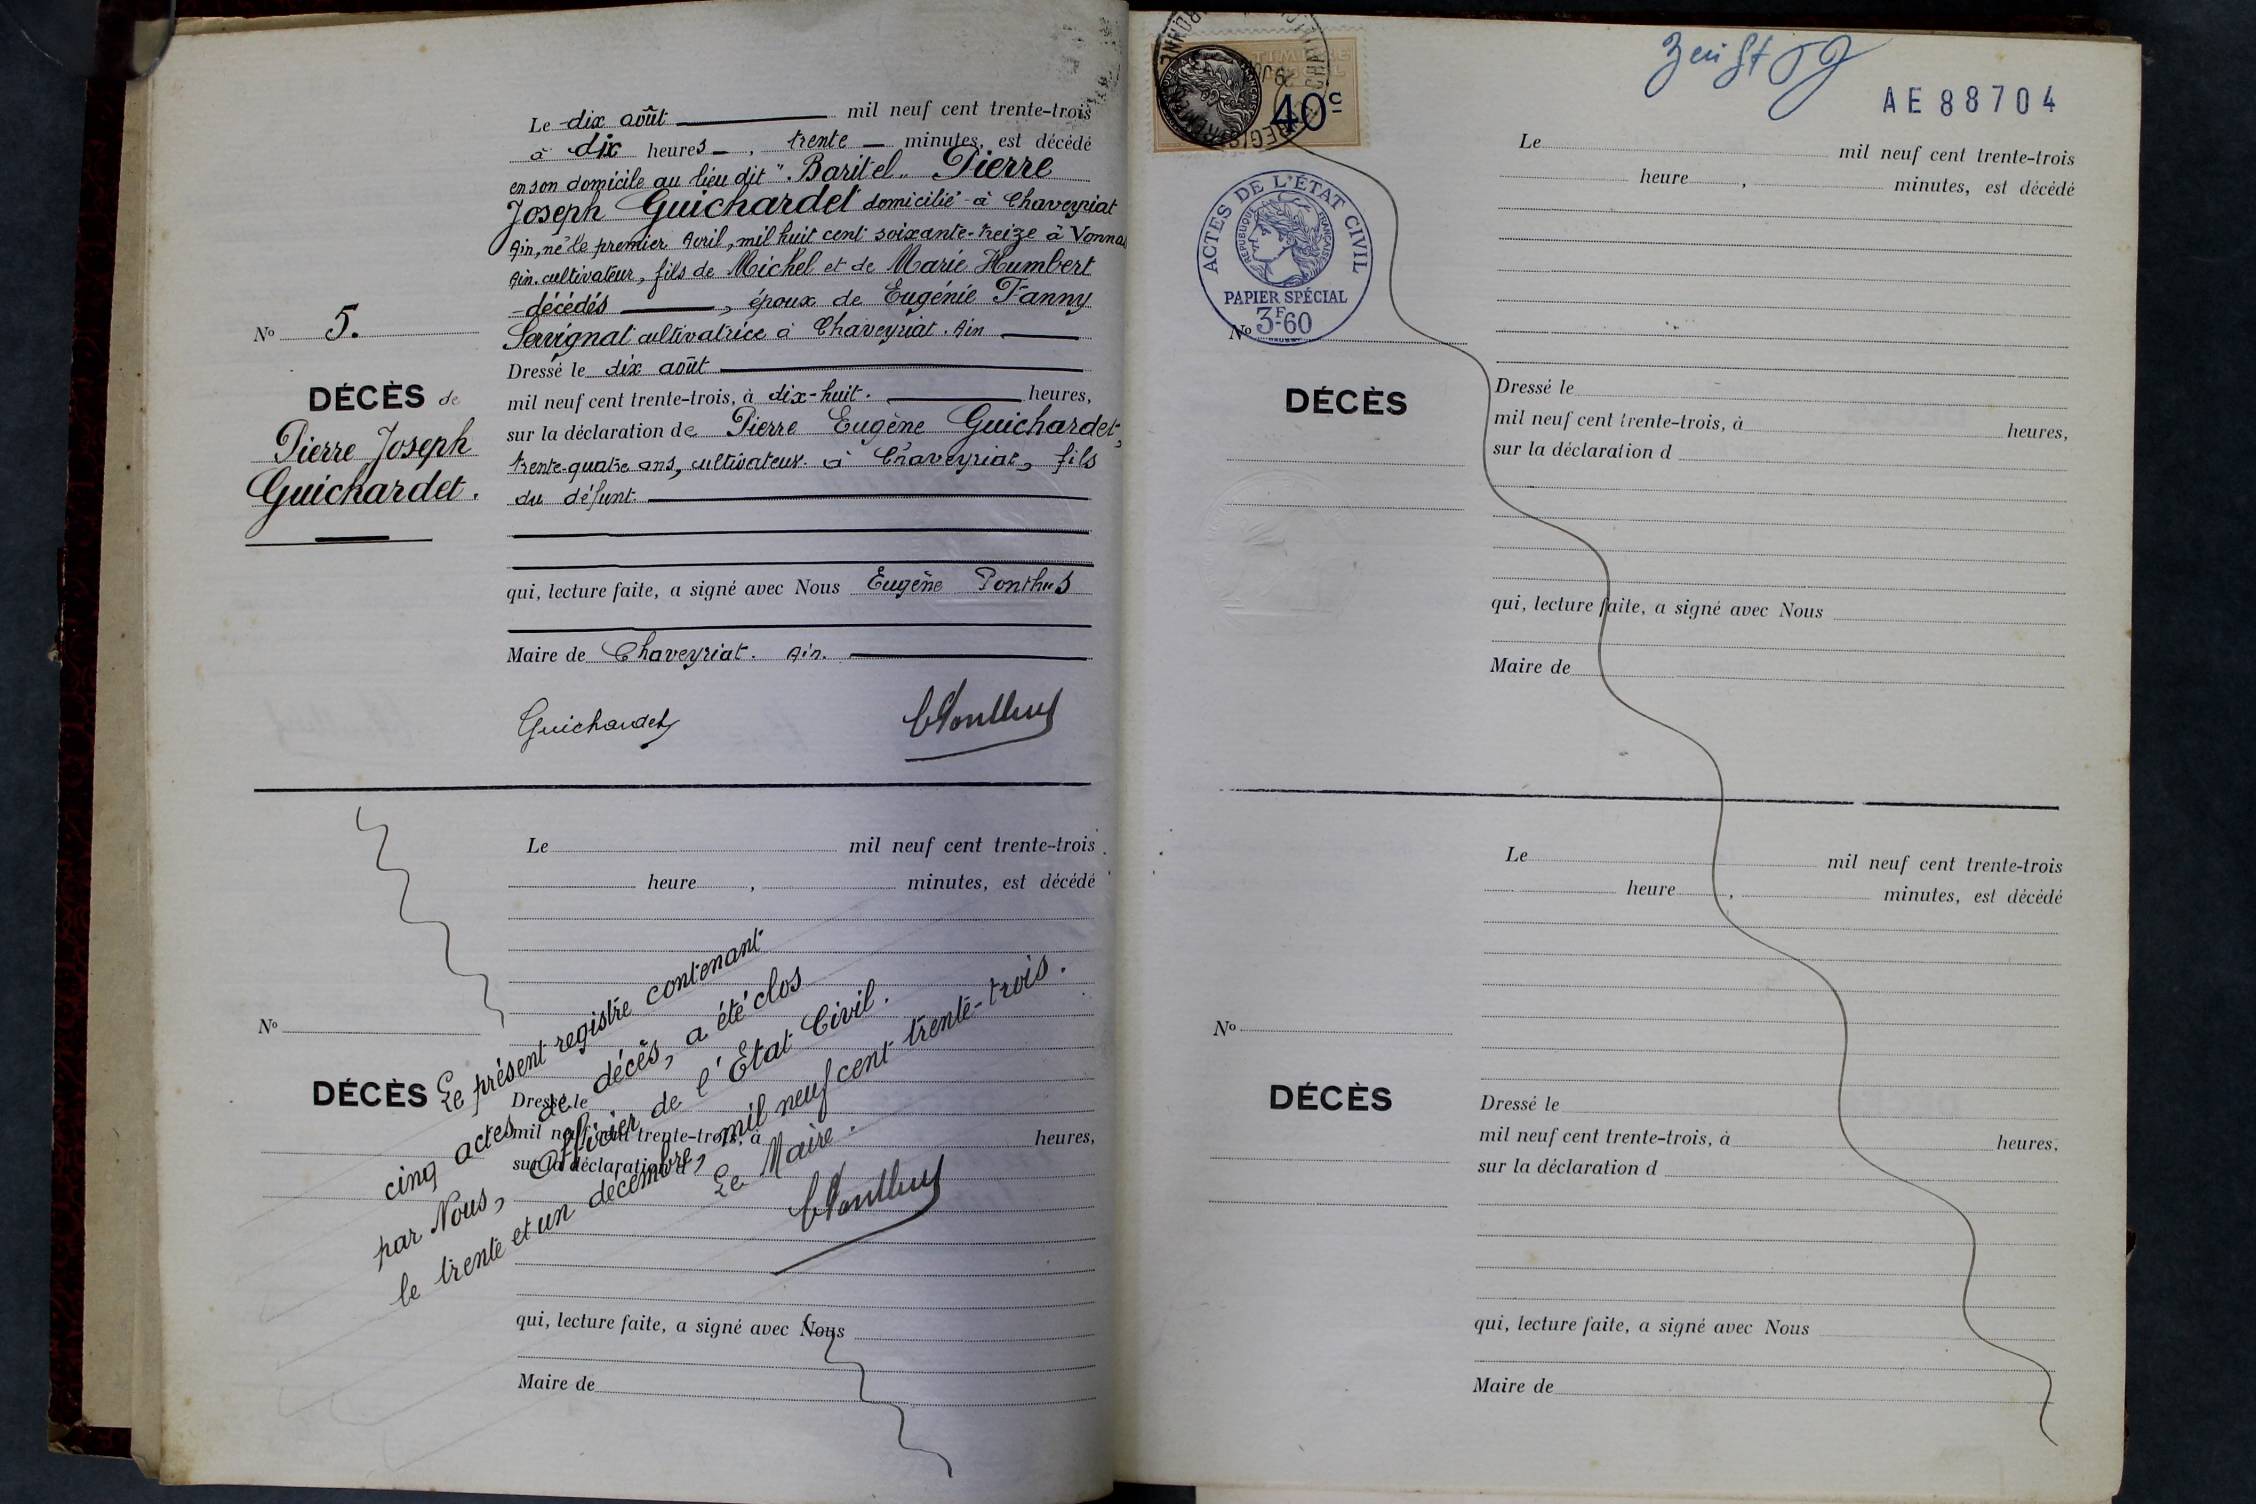 Le dix août mil neuf cent trente-trois
à dix heures, trente minutes, est décédé
en son domicile au lieu dit "Baritel" Pierre
Joseph Guichardet domicilié à Chaveyriat
Ain, né le premier Avril, mil huit cent soixante-treize à Vonnas
Ain. cultivateur, fils de Michel et de Marie Humbert
décédés, époux de Eugénie Fanny
Savignat cultivatrice à Chaveyriat. Ain
Dressé le dix août
mil neuf cent trente-trois, à dix-huit. heures,
sur la déclaration de Pierre Eugène Guichardet,
trente-quatre ans, cultivateur à Chaveyriat, fils
du défunt.
qui, lecture faite, a signé avec Nous Eugène Ponthus
Maire de Chaveyriat. Ain.
Guichardet
No 5.
DÉCÈS de
Pierre Joseph
Guichardet.
Le mil neuf cent trente-trois
heure, minutes, est décédé
No
DÉCÈS
Dressé le
mil neuf cent trente-trois, à heures,
sur la déclaration d
qui, lecture faite, a signé avec Nous
Maire de
Le présent registre contenant
cinq actes de décès, a été clos
par Nous, Officier de l'Etat Civil.
le trente et un décembre, mil neuf cent trente-trois.
Le Maire.
40c
AE 88704
ACTES DE L'ÉTAT CIVIL
RÉPUBLIQUE FRANÇAISE
PAPIER SPÉCIAL
3F60
No
DÉCÈS
Le mil neuf cent trente-trois
heure, minutes, est décédé
Dressé le
mil neuf cent trente-trois, à heures,
sur la déclaration d
qui, lecture faite, a signé avec Nous
Maire de
No
DÉCÈS
Le mil neuf cent trente-trois
heure, minutes, est décédé
Dressé le
mil neuf cent trente-trois, à heures,
sur la déclaration d
qui, lecture faite, a signé avec Nous
Maire de